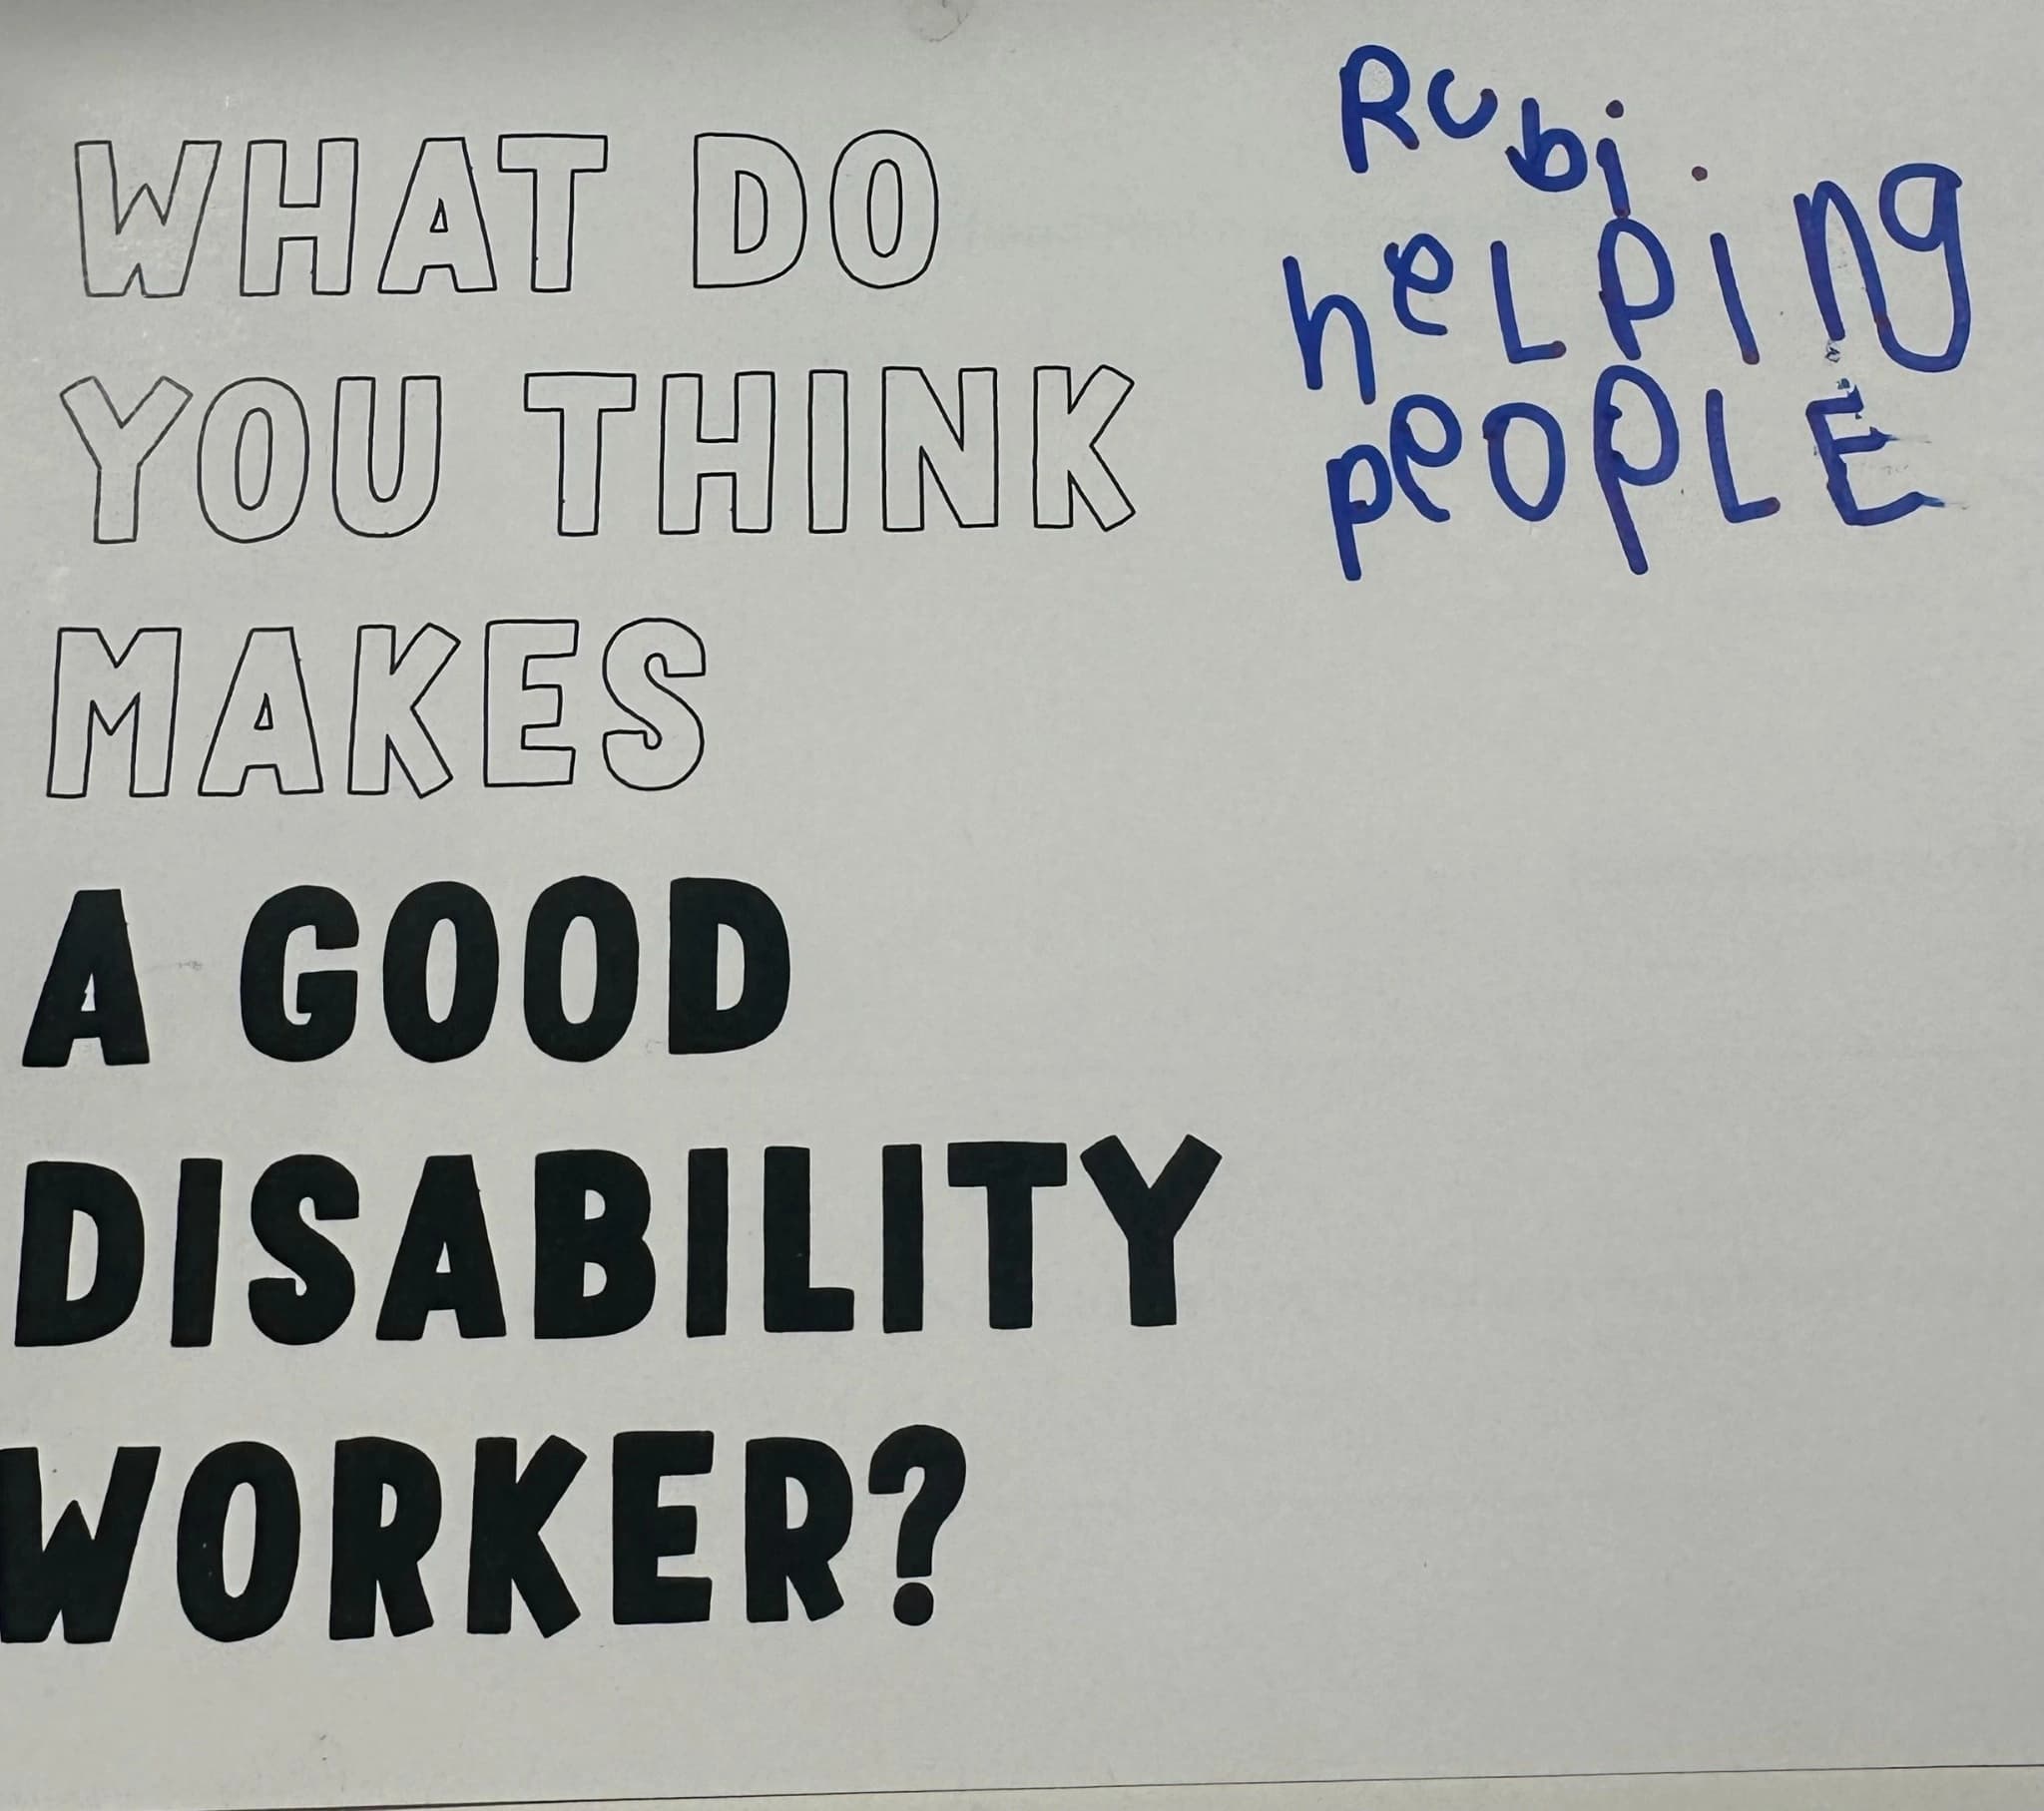 WHAT DO
YOU THINK
MAKES
A GOOD
DISABILITY
WORKER?
Rubi
heLping
peopLE